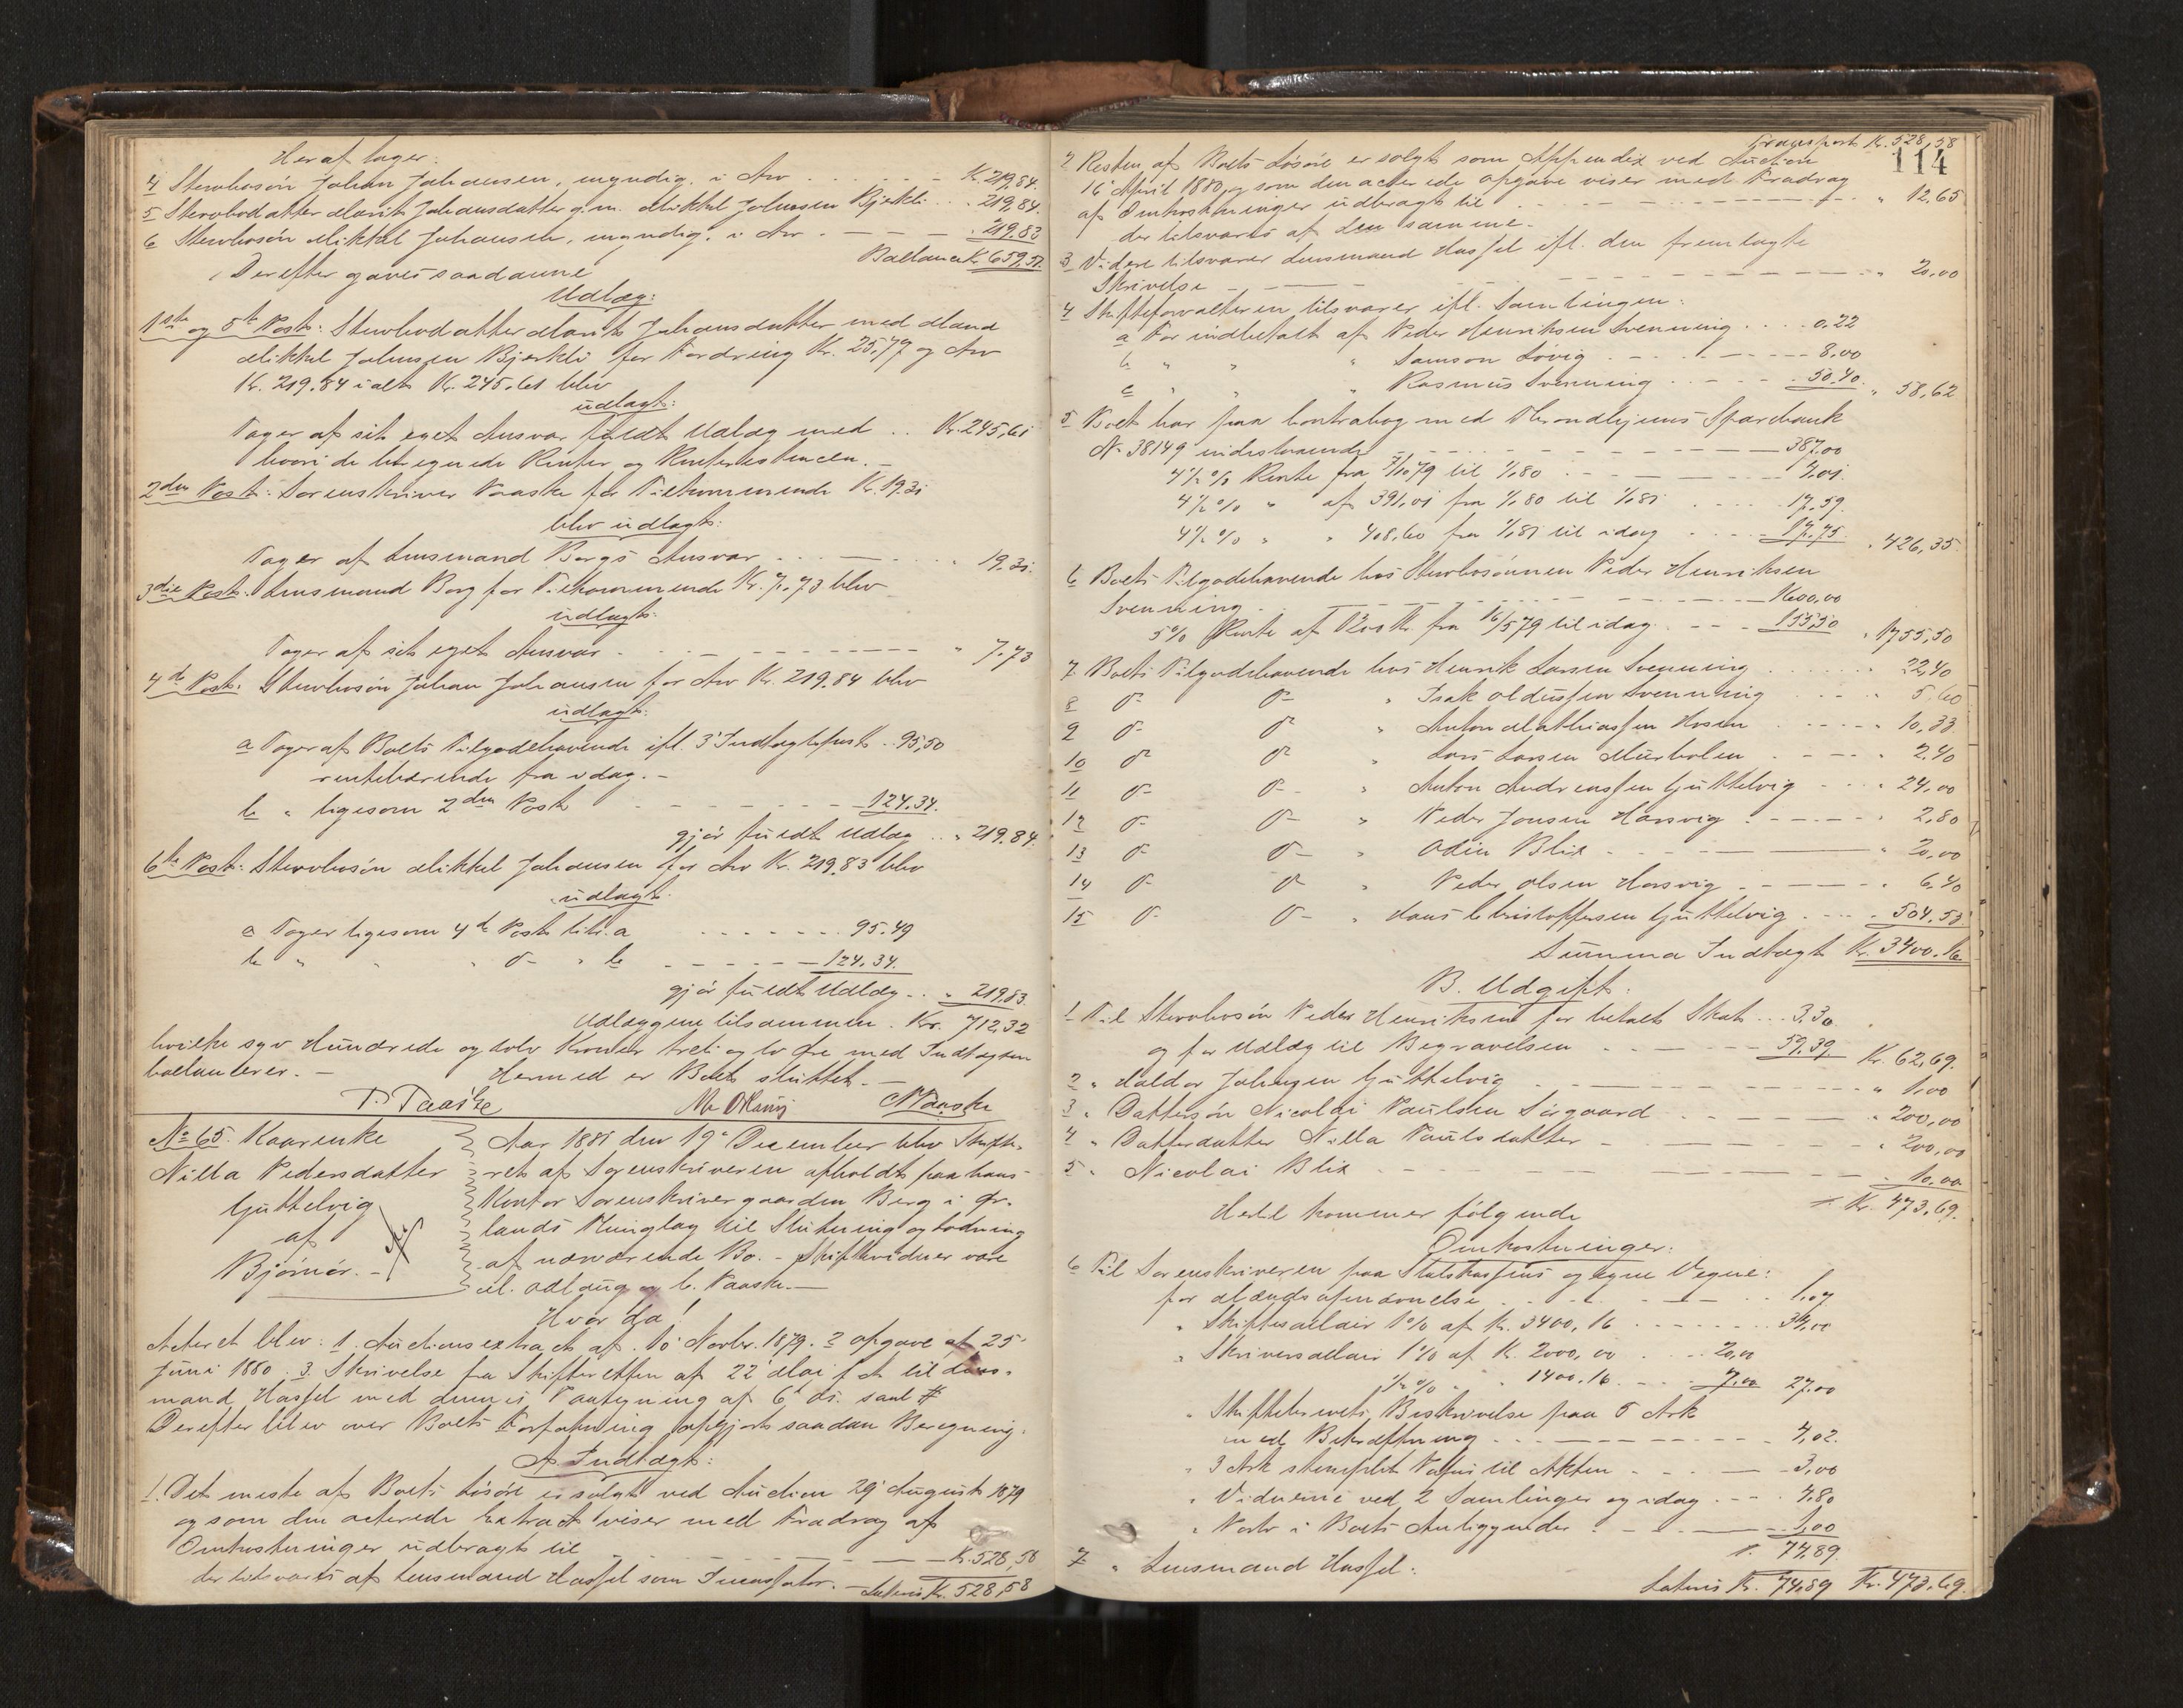 Heraf tager:
4 Stervbosön Johan Johansen, myndig, i Arv K. 219,84.
5 Stervbodatter Marit Johansdatter g.m. Mikkel Johnsen Bjerkli 219,84.
6 Stervbosön Mikkel Johansen, myndig, i Arv 219.83
Ballance K. 659,51.
Derefter gaves saadanne
Udlæg:
1ste og 5te Post: Stervbodatter Marit Johansdatter med Mand
Mikkel Johnsen Bjerkli for Fordring Kr. 25,77 og Arv
Kr. 219.84 i alt Kr. 245.61 blev
udlagt:
Tager af sit eget Ansvar fuldt Udlæg med Kr. 245,61
hvori de beregnede Renter og Renterestancen.
2den Post: Sorenskriver Paaske for Tilkommende Kr. 19.31
blev udlagt:
Tager af Lensmand Borgs Ansvar 19.31.
3die Post: Lensmand Borg for Tilkommende Kr. 7.73 blev
udlagt:
Tager af sit eget Ansvar " 7.73
4de Post: Stervbosön Johan Johansen for Arv Kr. 219.84 blev
udlagt:
a Tager af Boets Tilgodehavende ifl. 3' Indtægtspost 95,50
rentebærende fra idag.
b " ligesom 2den Post 124.34.
gjör fuldt Udlæg " 219.84.
6te Post: Stervbosön Mikkel Johansen for Arv Kr. 219.83 blev
udlagt.
a Tager ligesom 4de Post litr. a 95.49
b " " d° " b 124.34.
gjör fuldt Udlæg " 219,83.
Udlæggene tilsammen Kr. 712,32
hvilke syv Hundrede og tolv Kroner treti og to Øre med Indtægten
ballancerer. Hermed er Boet sluttet.
P. Paaske Paaske
No 65. Kaarenke
Nilla Pedersdatter
Gjuttelvig
af
Björnör.
Aar 1881 den 19de December blev Skifte-
ret af Sorenskriveren afholdt paa hans
Kontor Sorenskrivergaarden Berg i Ør-
lands Thinglag til Slutning og Lodning
af nærværende Bo. Skiftevidner vare
M. Odlaug og C. Paaske.
Hvor da!
Acteret blev: 1. Auctionsextract af 10' Novbr. 1879. 2 Opgave af 25'
Juni 1880. 3. Skrivelse fra Skifteretten af 22' Mai f. A. til Lens-
mand Hassel med dennes Paategning af 6' ds. samt #
Derefter blev over Boets Forfatning opgjort saadan Beregning:
A. Indtægt:
1. Det meste af Boets Lösöre er solgt ved Auction 29' August 1879
og som den acterede Extract viser med Fradrag af
Omkostninger udbragt til Kr. 528,58
der tilsvares af Lensmand Hassel som Incassator. Lateris Kr. 528,58
Transport Kr. 528,58
114
2 Resten af Boets Lösöre er solgt som Appendix ved Auction
16' April 1880, og som den acterede Opgave viser med Fradrag
af Omkostninger udbragt til " 12,65
der tilsvares af den samme.
3 Videre tilsvarer Lensmand Hassel ifl. den fremlagte
Skrivelse " 20,00
4 Skifteforvalteren tilsvarer ifl. Samlingen:
a For indbetalt af Peder Henriksen Svenning 0.22
b " " " Samson Lövig 8,00
c " " " Rasmus Svenning 50.40. " 58,62
5 Boet har paa Contrabog med Throndhjems Sparebank
No 38149 indestaaende 387,00
4½ % Rente fra 7/10 79 til 1/1 80 4,01.
4½ % " af 391,01 fra 1/1 80 til 1/1 81 17,59.
4½ % " " 408,60 fra 1/1 81 til idag 17,75. " 426,35.
6 Boets Tilgodehavende hos Stervbosönnen Peder Henriksen
Svenning 1600,00
5 % Rente af fra 16/5 79 til idag 155,50 " 1755,50
7 Boets Tilgodehavende hos Henrik Larsen Svenning 22,40
8 d° d° " Isak Aldussen Svenning " 5.60
9 d° d° " Anton Mathiassen Hosen " 10,33
10 d° d° " Lars Larsen Murholen " 2.40
11 d° d° " Anton Andreassen Gjuttelvig " 24,00
12 d° d° " Peder Jonsen Harsvig " 2,80
13 d° d° " Odin Blix " 20,00
14 d° d° " Peder Olsen Harsvig " 6,40
15 d° d° " Hans Christoffersen Gjuttelvig 504.53
Summa Indtægt Kr. 3400.16
B. Udgift:
1 Til Stervbosön Peder Henriksen for betalt Skat 3.30
og for Udlæg til Begravelsen 59,39 Kr. 62,69.
2 " Haldor Johnsen Gjuttelvig " 1,00
3 " Dattersön Nicolai Paulsen Sörgaard " 200,00
4 " Datterdatter Nilla Paulsdatter " 200,00
5 " Nicolai Blix 10,00
Hertil kommer fölgende Kr. 473,69.
Omkostninger:
6 Til Sorenskriveren paa Statskassens og egne Vegne:
for Mændsopnævnelse 1.07
" Skiftesallair 1 % af K. 3400,16 34,00
" Skriversallair 1 % af K. 2000,00 20,00
½ % " 1400.16 7,00 27,00
" Skiftebrevets Beskrivelse paa 5 Ark
med Bekræftning 4,02.
" 3 Ark stemplet Papir til Akten 3,00
" Vidnerne ved 2 Samlinger og idag 4.80
" Porto i Boets Anliggender 1,00
7 " Lensmand Hassel. 74,89.
Lateris Kr. 74,89 Kr. 473.69.